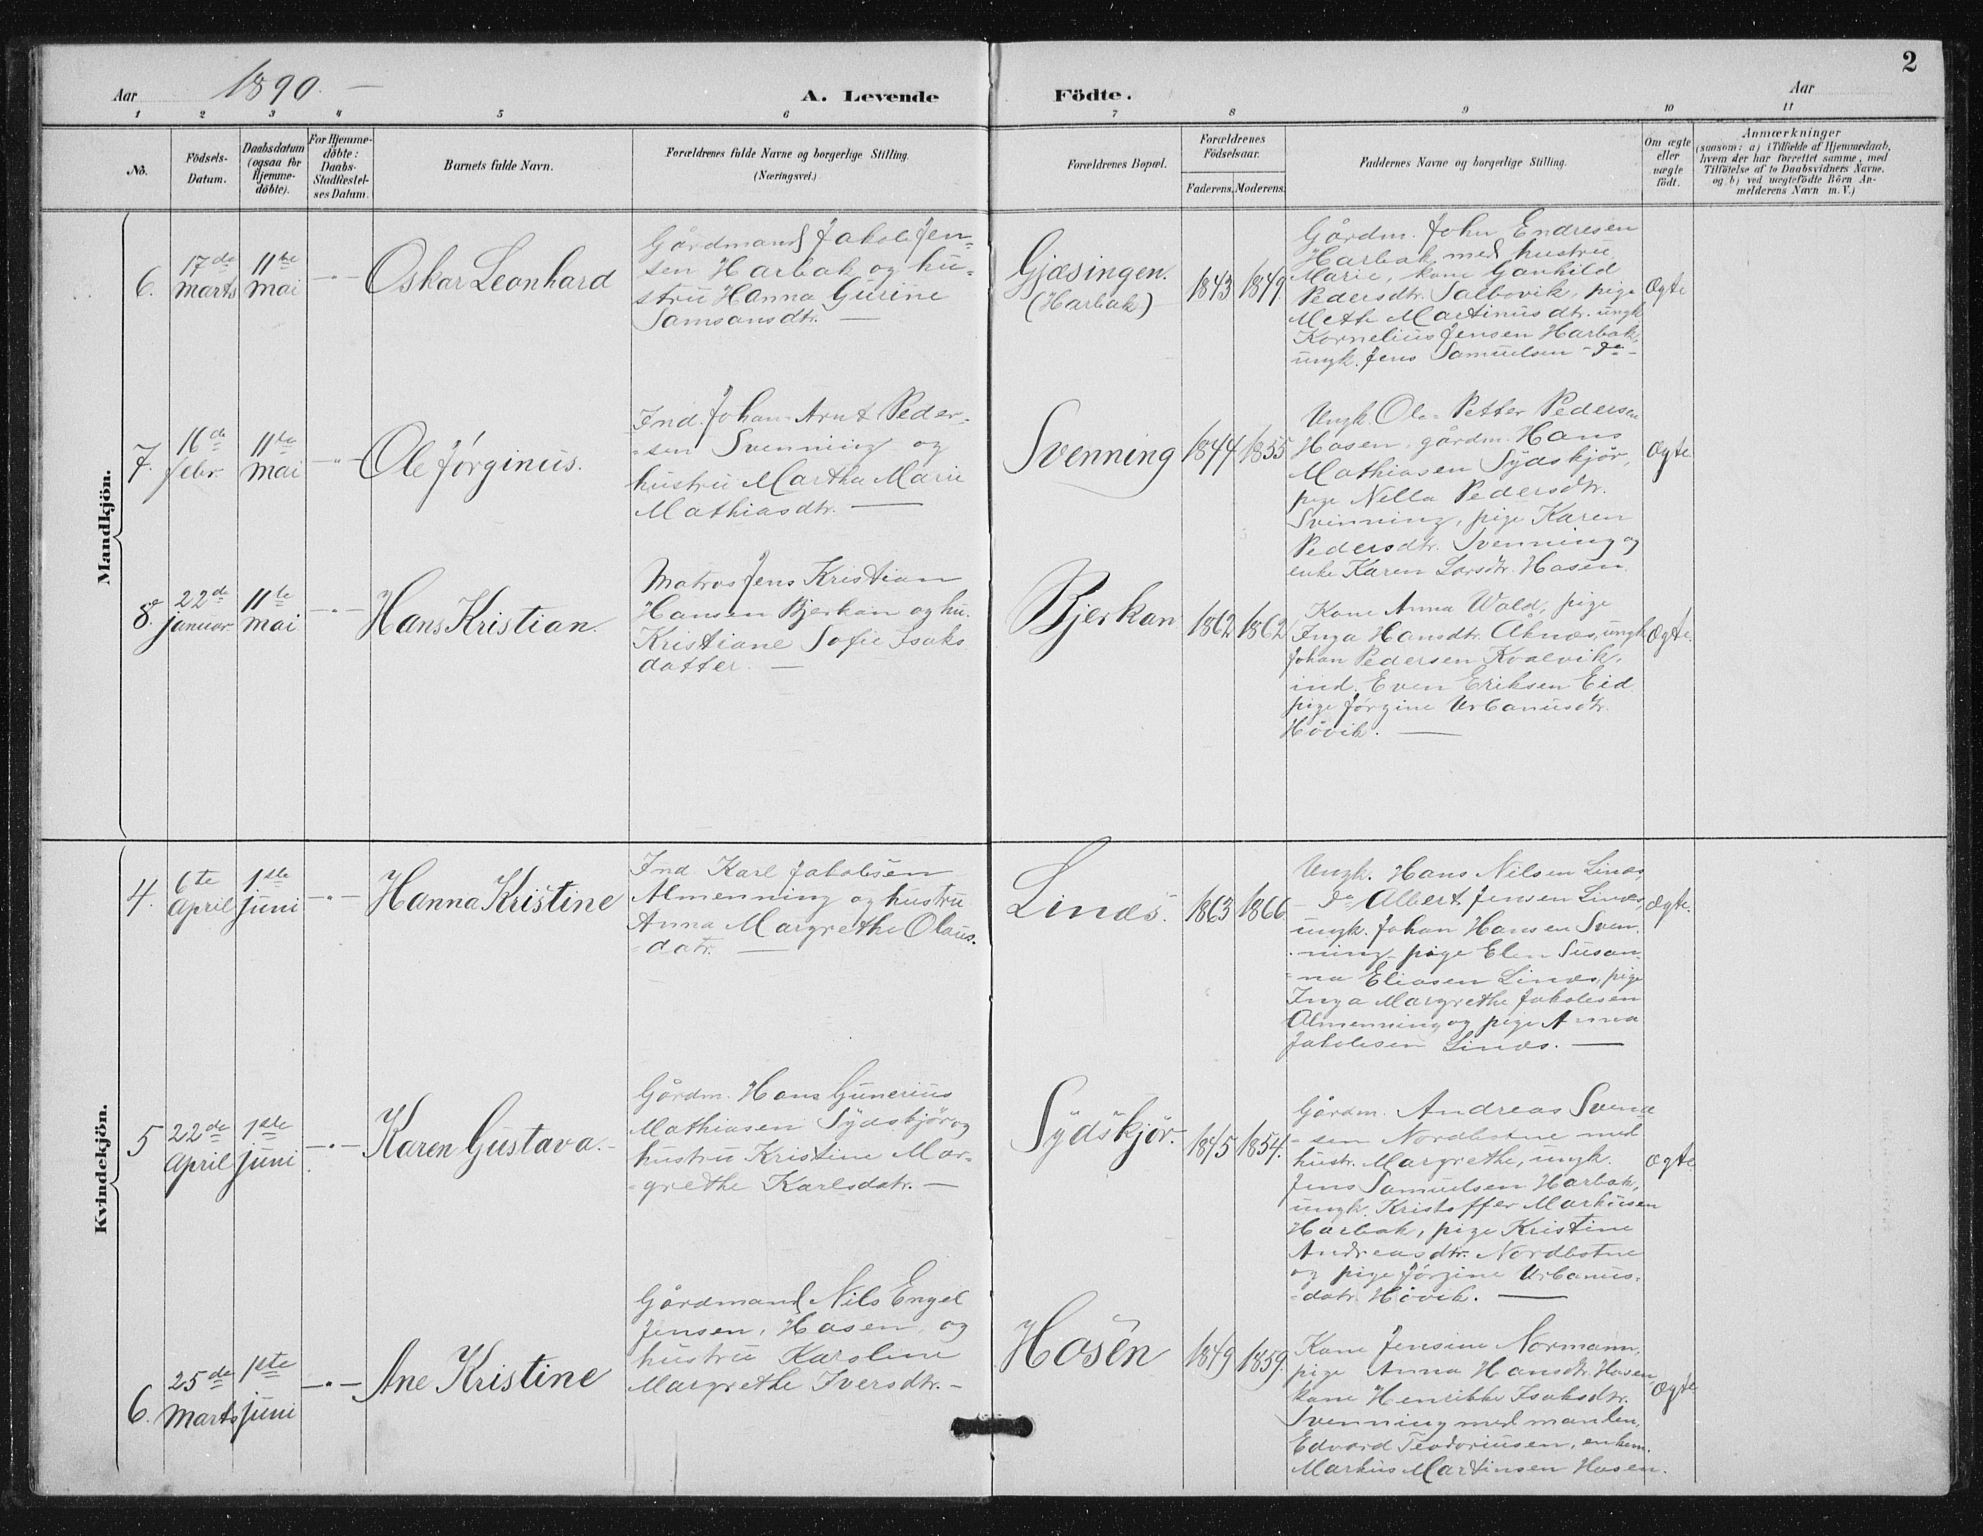 2
Aar 1890. —
A. Levende Födte.
Aar
1 2 3 4 5 6 7 8 9 10 11
No.
Födsels-
Datum.
Daabsdatum
(ogsaa for
Hjemme-
döbte).
For Hjemme-
döbte:
Daabs-
Stadfæstel-
ses Datum.
Barnets fulde Navn.
Forældrenes fulde Navne og borgerlige Stilling.
(Næringsvei.)
Forældrenes Bopæl.
Forældrenes
Födselsaar.
Faderens. Moderens.
Faddernes Navne og borgerlige Stilling.
Om ægte
eller
uægte
födt.
Anmærkninger
(saasom: a) i Tilfælde af Hjemmedaab,
hvem der har forrettet samme, med
Tilföielse af to Daabsvidners Navne.
og b) ved uægtefödte Börn An-
melderens Navn m. V.)
Mandkjön.
6.
17de
marts
11te
mai
-"-
Oskar Leonhard
Gårdmand Jakob Jen-
sen Harbak og hu-
stru Hanna Gurine
Samsonsdtr. —
Gjæsingen.
(Harbak)
1843 1849.
Gårdm. John Endresen
Harbak med hustru
Marie, kone Gunhild
Pedersdtr. Salbovik, pige
Mette Martinusdtr. ungk
Kornelius Jensen Harbak,
ungk. Jens Samuelsen - do -
Ægte
7.
16de
febr.
11te
mai
-"-
Ole Jørginus.
Ind. Johan Arnt Peder-
-sen Svenning og
hustru Martha Marie
Mathiasdtr. —
Svenning
1844 1855
Ungk. Ole Petter Pedersen
Hosen, gårdm. Hans
Mathiasen Sydskjør,
pige Nella Pedersdtr.
Svinning, pige Karen
Pedersdtr. Svenning og
enke Karen Larsdtr. Hosen.
Ægte
8.
22de
januar
11te
mai
-"-
Hans Kristian.
Matros Jens Kristian
Hansen Bjerkan og hu.
Kristiane Sofie Isaks
datter. —
Bjerkan
1862 1862
Kone Anna Wold, pige
Inga Hansdtr. Aknes, ungk
Johan Pedersen Kvalvik,
ind. Even Eriksen Eid
pige Jørgine Urbanusdtr.
Høvik. —
Ægte.
Kvindekjön.
4.
6te
April
1ste
juni
-"-
Hanna Kristine
Ind Karl Jakobsen
Almenning og hustru
Anna Margrethe Olaus-
-datr. —
Linæs.
1863 1866
Ungk. Hans Nilsen Linæs
do Albert Jensen Linæs,
ungk. Johan Hansen Sven-
-ning, pige Elen Susan-
-na Eliasen Linæs, pige
Inga Margrethe Jakobsen
Almenning og pige Anna
Jakobsen Linæs. —
Ægte.
5
22de
April
1ste
juni
-"-
Karen Gustava.
Gårdm. Hans Gunerius
Mathiasen Sydskjør og
hustru Kristine Mar-
-grethe Karlsdatr. —
Sydskjør.
1845 1854.
Gårdm. Andreas Svend-
-sen Nordbotne med
hustr. Margrethe, ungk.
Jens Samuelsen Harbak,
ungk. Kristoffer Markusen
Harbak, pige Kristine
Andreasdtr. Nordbotne
og pige Jørgine Urbanus-
-datr. Høvik. —
Ægte
6.
25de
Marts
1ste
juni
-"-
Ane Kristine
Gårdmand Nils Engel
Jensen, Hosen, og
hustru Karoline
Margrethe Iversdtr. —
Hosen
1849 1859.
Kone Jensine Normann,
pige Anna Hansdtr. Hosen
kone Henrikke Isaksdtr.
Svenning med manden,
Edvard Teodoriusen, enkem.
Markus Martinsen Hosen.
Ægte